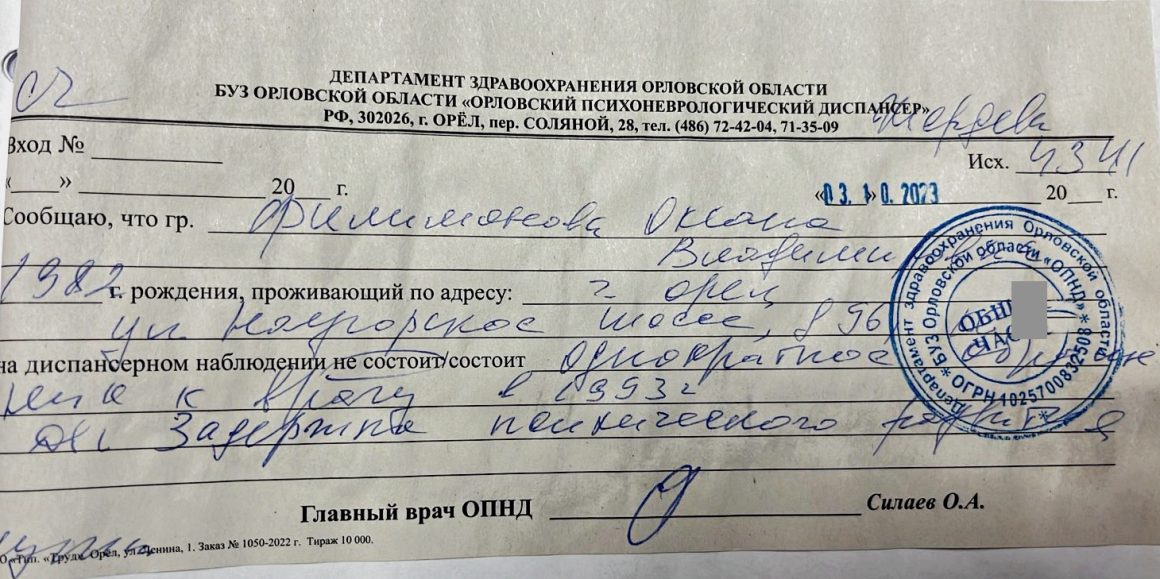 ДЕПАРТАМЕНТ ЗДРАВООХРАНЕНИЯ ОРЛОВСКОЙ ОБЛАСТИ
БУЗ ОРЛОВСКОЙ ОБЛАСТИ «ОРЛОВСКИЙ ПСИХОНЕВРОЛОГИЧЕСКИЙ ДИСПАНСЕР»
РФ, 302026, г. ОРЁЛ, пер. СОЛЯНОЙ, 28, тел. (486) 72-42-04, 71-35-09
Вход №
Исх. 4341
«___» ___ 20__ г.
«03.10.2023 20__ г.
Сообщаю, что гр. Филимонова Оксана
1982 г. рождения, проживающий по адресу: г. Орел
ул. шоссе, д 96
на диспансерном наблюдении не состоит/состоит однократное обраще
ние к врачу в 1993 г
Ds: Задержка психического развития
Главный врач ОПНД Силаев О.А.
«Труд» Орёл, ул. Ленина, 1. Заказ № 1050-2022 г. Тираж 10 000.
Департамент здравоохранения Орловской области
БУЗ Орловской области «ОПНД»
* ОГРН 1025700832508 *